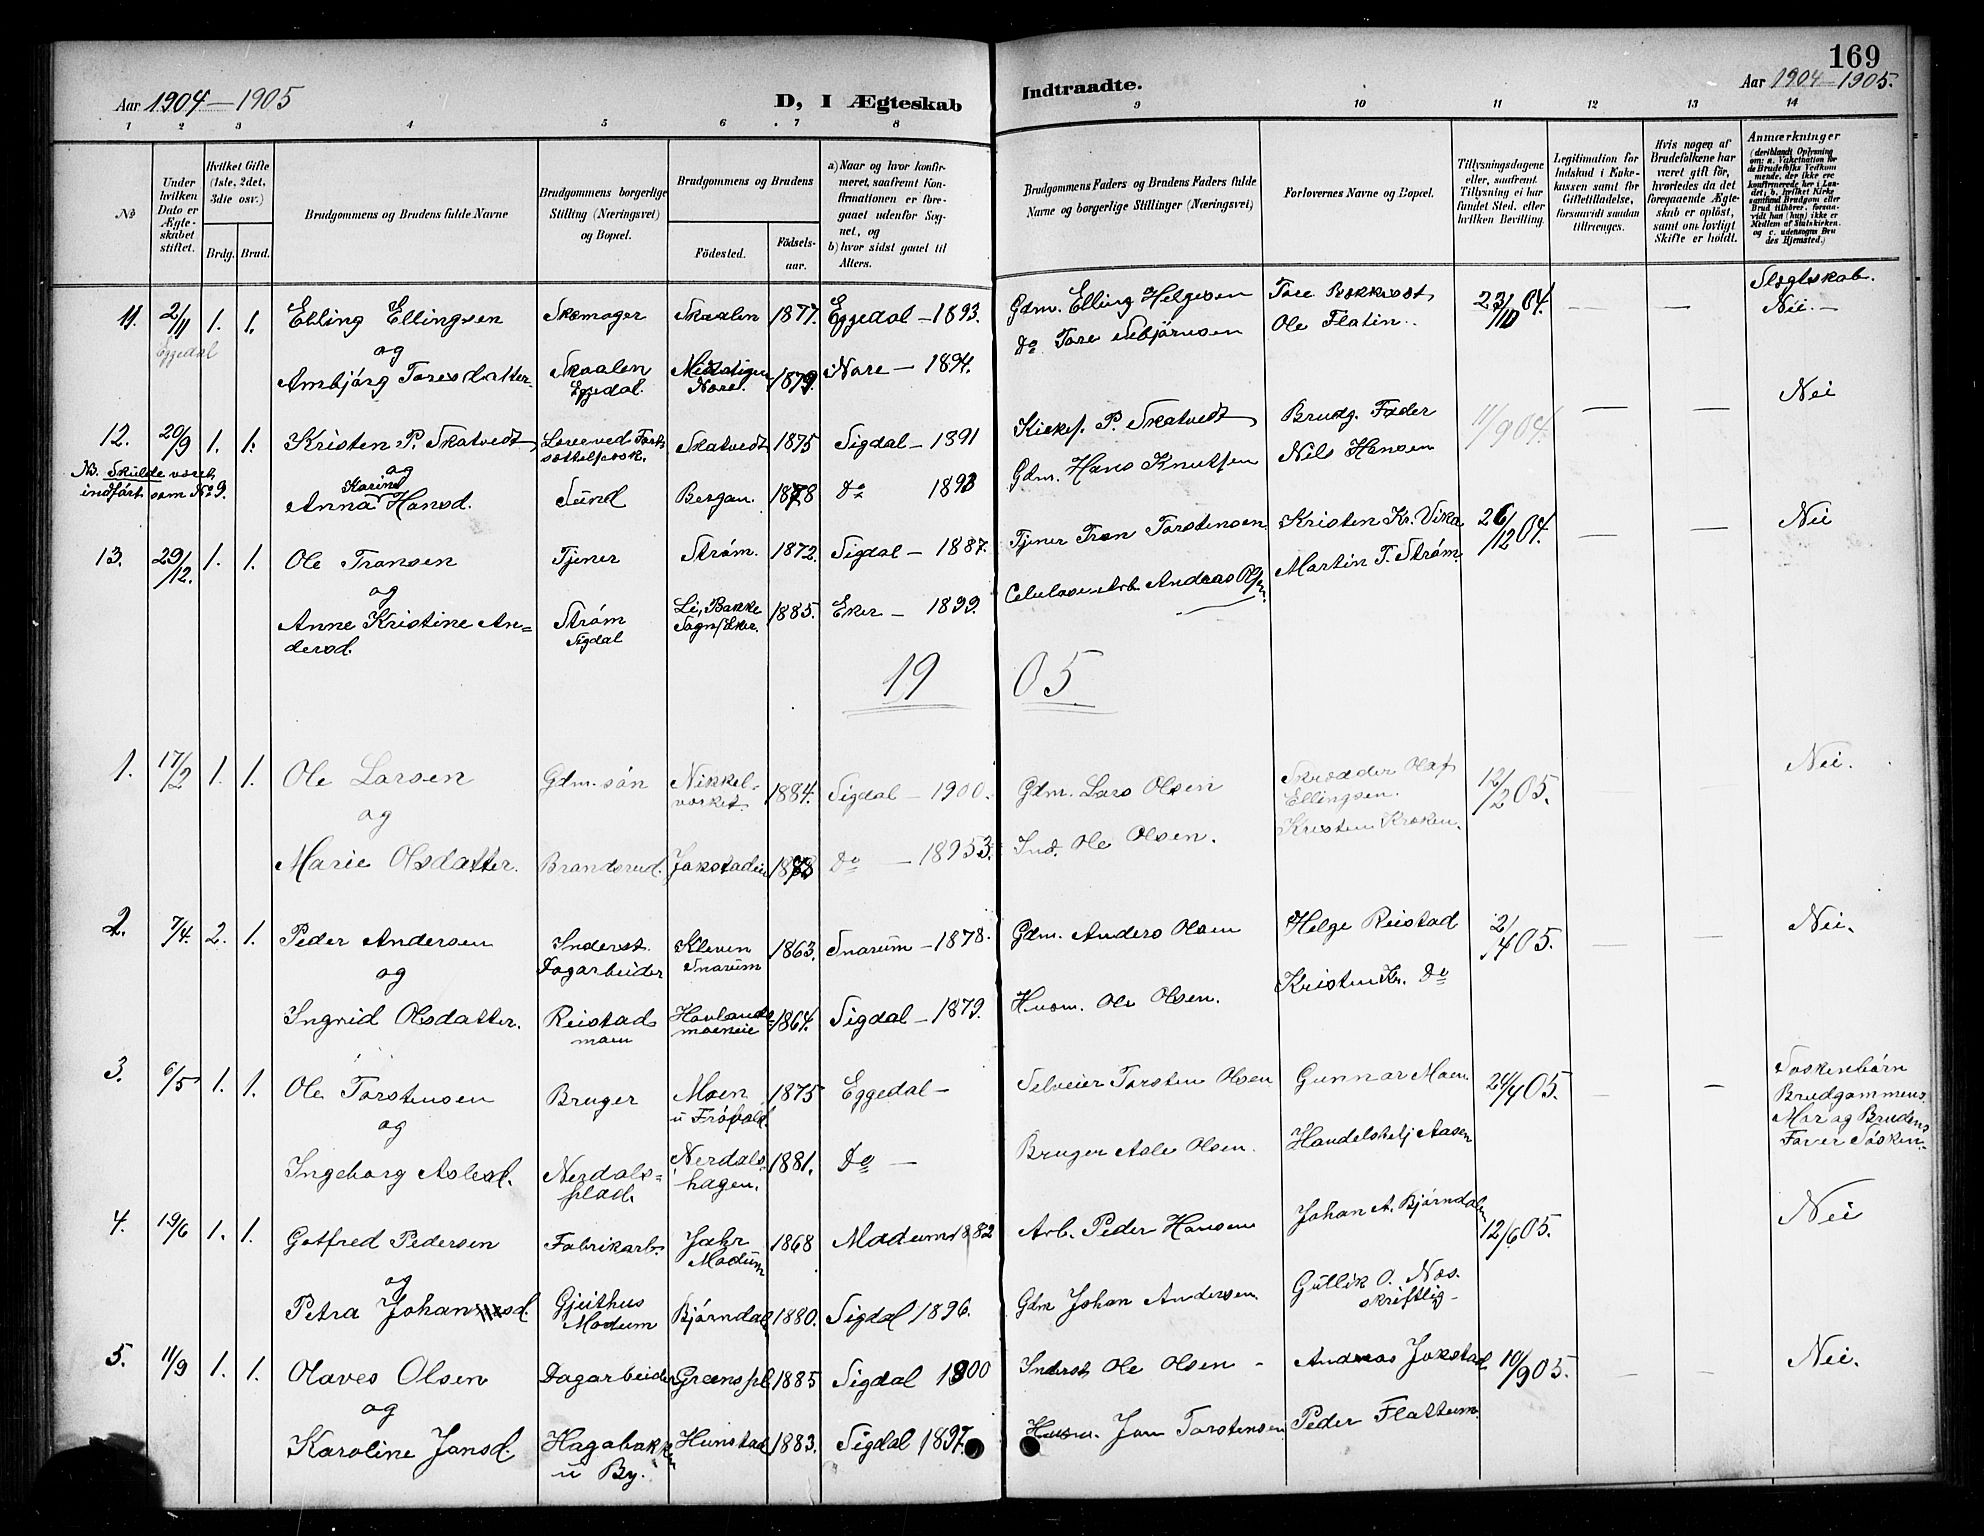 169
Aar 1904–1905
D, I Ægteskab
Indtraadte.
Aar 1904–1905.
1 2 3 4 5 6 7 8 9 10 11 12 13 14
No
Under hvilken Dato er Ægteskabet stiftet.
Hvilket Gifte (1ste, 2det, 3die osv.)
Brdg. Brud.
Brudgommens og Brudens fulde Navne
Brudgommens borgerlige Stilling (Næringsvei) og Bopæl.
Brudgommens og Brudens
Fødested.
Fødselsaar.
a) Naar og hvor konfirmeret, saafremt Konfirmationen er foregaaet udenfor Sognet, og
b) hvor sidst gaaet til Alters.
Brudgommens Faders og Brudens Faders fulde Navne og borgerlige Stillinger (Næringsvei)
Forlovernes Navne og Bopæl.
Tillysningsdagene eller, saafremt Tillysning ei har fundet Sted, efter hvilken Bevilling.
Legitimation for Indskud i Enkekassen samt for Giftetilladelse, forsaavidt saadan tiltrænges.
Hvis nogen af Brudefolkene har været gift før, hvorledes da det foregaaende Ægteskab er opløst, samt om lovligt Skifte er holdt.
Anmærkninger
(deriblandt Oplysning om: a. Vakcination for de Brudefolks Vedkommende, der ikke ere konfirmerede her i Landet; b. hvilket Kirkesamfund Brudgom eller Brud tilhører, forsaavidt han (hun) ikke er Medlem af Statskirken, og c. udensogns Brudes Hjemsted.)
11. 2/11 1. 1. Elling Ellingsen Skomager Skaalen 1877. Eggedal – 1893. Gdm. Elling Helgesen Tore Bekkeset 23/10 04. — — Slægtskab. Nei. –
Eggedal og Do Tore Asbjørnsen Ole Flatin.
Ambjørg Toresdatter Skaalen Eggedal. Nore. 1879. Nore – 1894.
12. 20/9 1. 1. Kristen P. Skatvedt Skatvedt 1875 Sigdal – 1891 Kirkes. P. Skatvedt Brudg. Fader 11/9 04. — — Nei
NB. Skulde været indført som No 9. og Gdm. Hans Knutsen Nils Hansen
Anna Karine Hansd. Sund Bergan. 1878 Do 1893
13. 29/12. 1. 1. Ole Transen Tjener Strøm. 1872. Sigdal – 1887. Tjener Tron Torstensen Kristen Kr. Vika 26/12 04. — — Nei
og Celulosearb. Andreas Martin T. Strøm.
Anne Kristine Andersd. Strøm Sigdal Li, Bakke Sogn, Eker. 1885. Eker – 1899.
19 05
1. 17/2 1. 1. Ole Larsen Gdm. søn Nikkelverket 1884. Sigdal – 1900. Gdm. Lars Olsen Skrædder Olaf Ellingsen. 12/2 05. Nei.
og Ind. Ole Olsen. Kristen Kroken.
Marie Olsdatter. Brandsrud. Jokstadeie Do –
2. 7/4. 2. 1. Peder Andersen Inderst. Dagarbeider Kleven Snarum 1863. Snarum – 1878. Gdm. Anders Olsen Helge Reistad 2/4 05. — — Nei.
og
Ingrid Olsdatter. Reistad moen Hovlandsmoeneie 1864. Sigdal – 1879. Husm. Ole Olsen. Kristen Kr. Do
3. 6/5 1. 1. Ole Torstensen Bruger Moen u Frøvold. 1875 Eggedal – Selveier Torsten Olsen Gunnar Moen. 24/4 05. — — Søskenbørn Brudgommens Mor og Brudens Far er Søsken.
og
Ingeborg Aslesd. Nerdalsplad. Nerdalshagen. 1881. Do – Bruger Asle Olsen. Handelsbetj Aasen
4. 19/6 1. 1. Gotfred Pedersen Fabrikarb. Jahr Modum 1868 Modum 1882 Arb. Peder Hansen Johan A. Bjørndalen 12/6 05. Nei
og
Petra Johansd. Gjeithus Modum Bjørndal 1880. Sigdal 1896. Gdm Johan Andersen. Gullik O. Næs. skriftlig –
5. 11/9 1. 1. Olaves Olsen Dagarbeider Greenspl. 1885 Sigdal 1900 Inderst Ole Olsen – Andreas Jokstad 10/9 05. — — Nei.
og
Karoline Jonsd. Hagabakken u By. Hunstad 1883. Sigdal 1897. Husm. Jon Torstensen Peder Flattum.